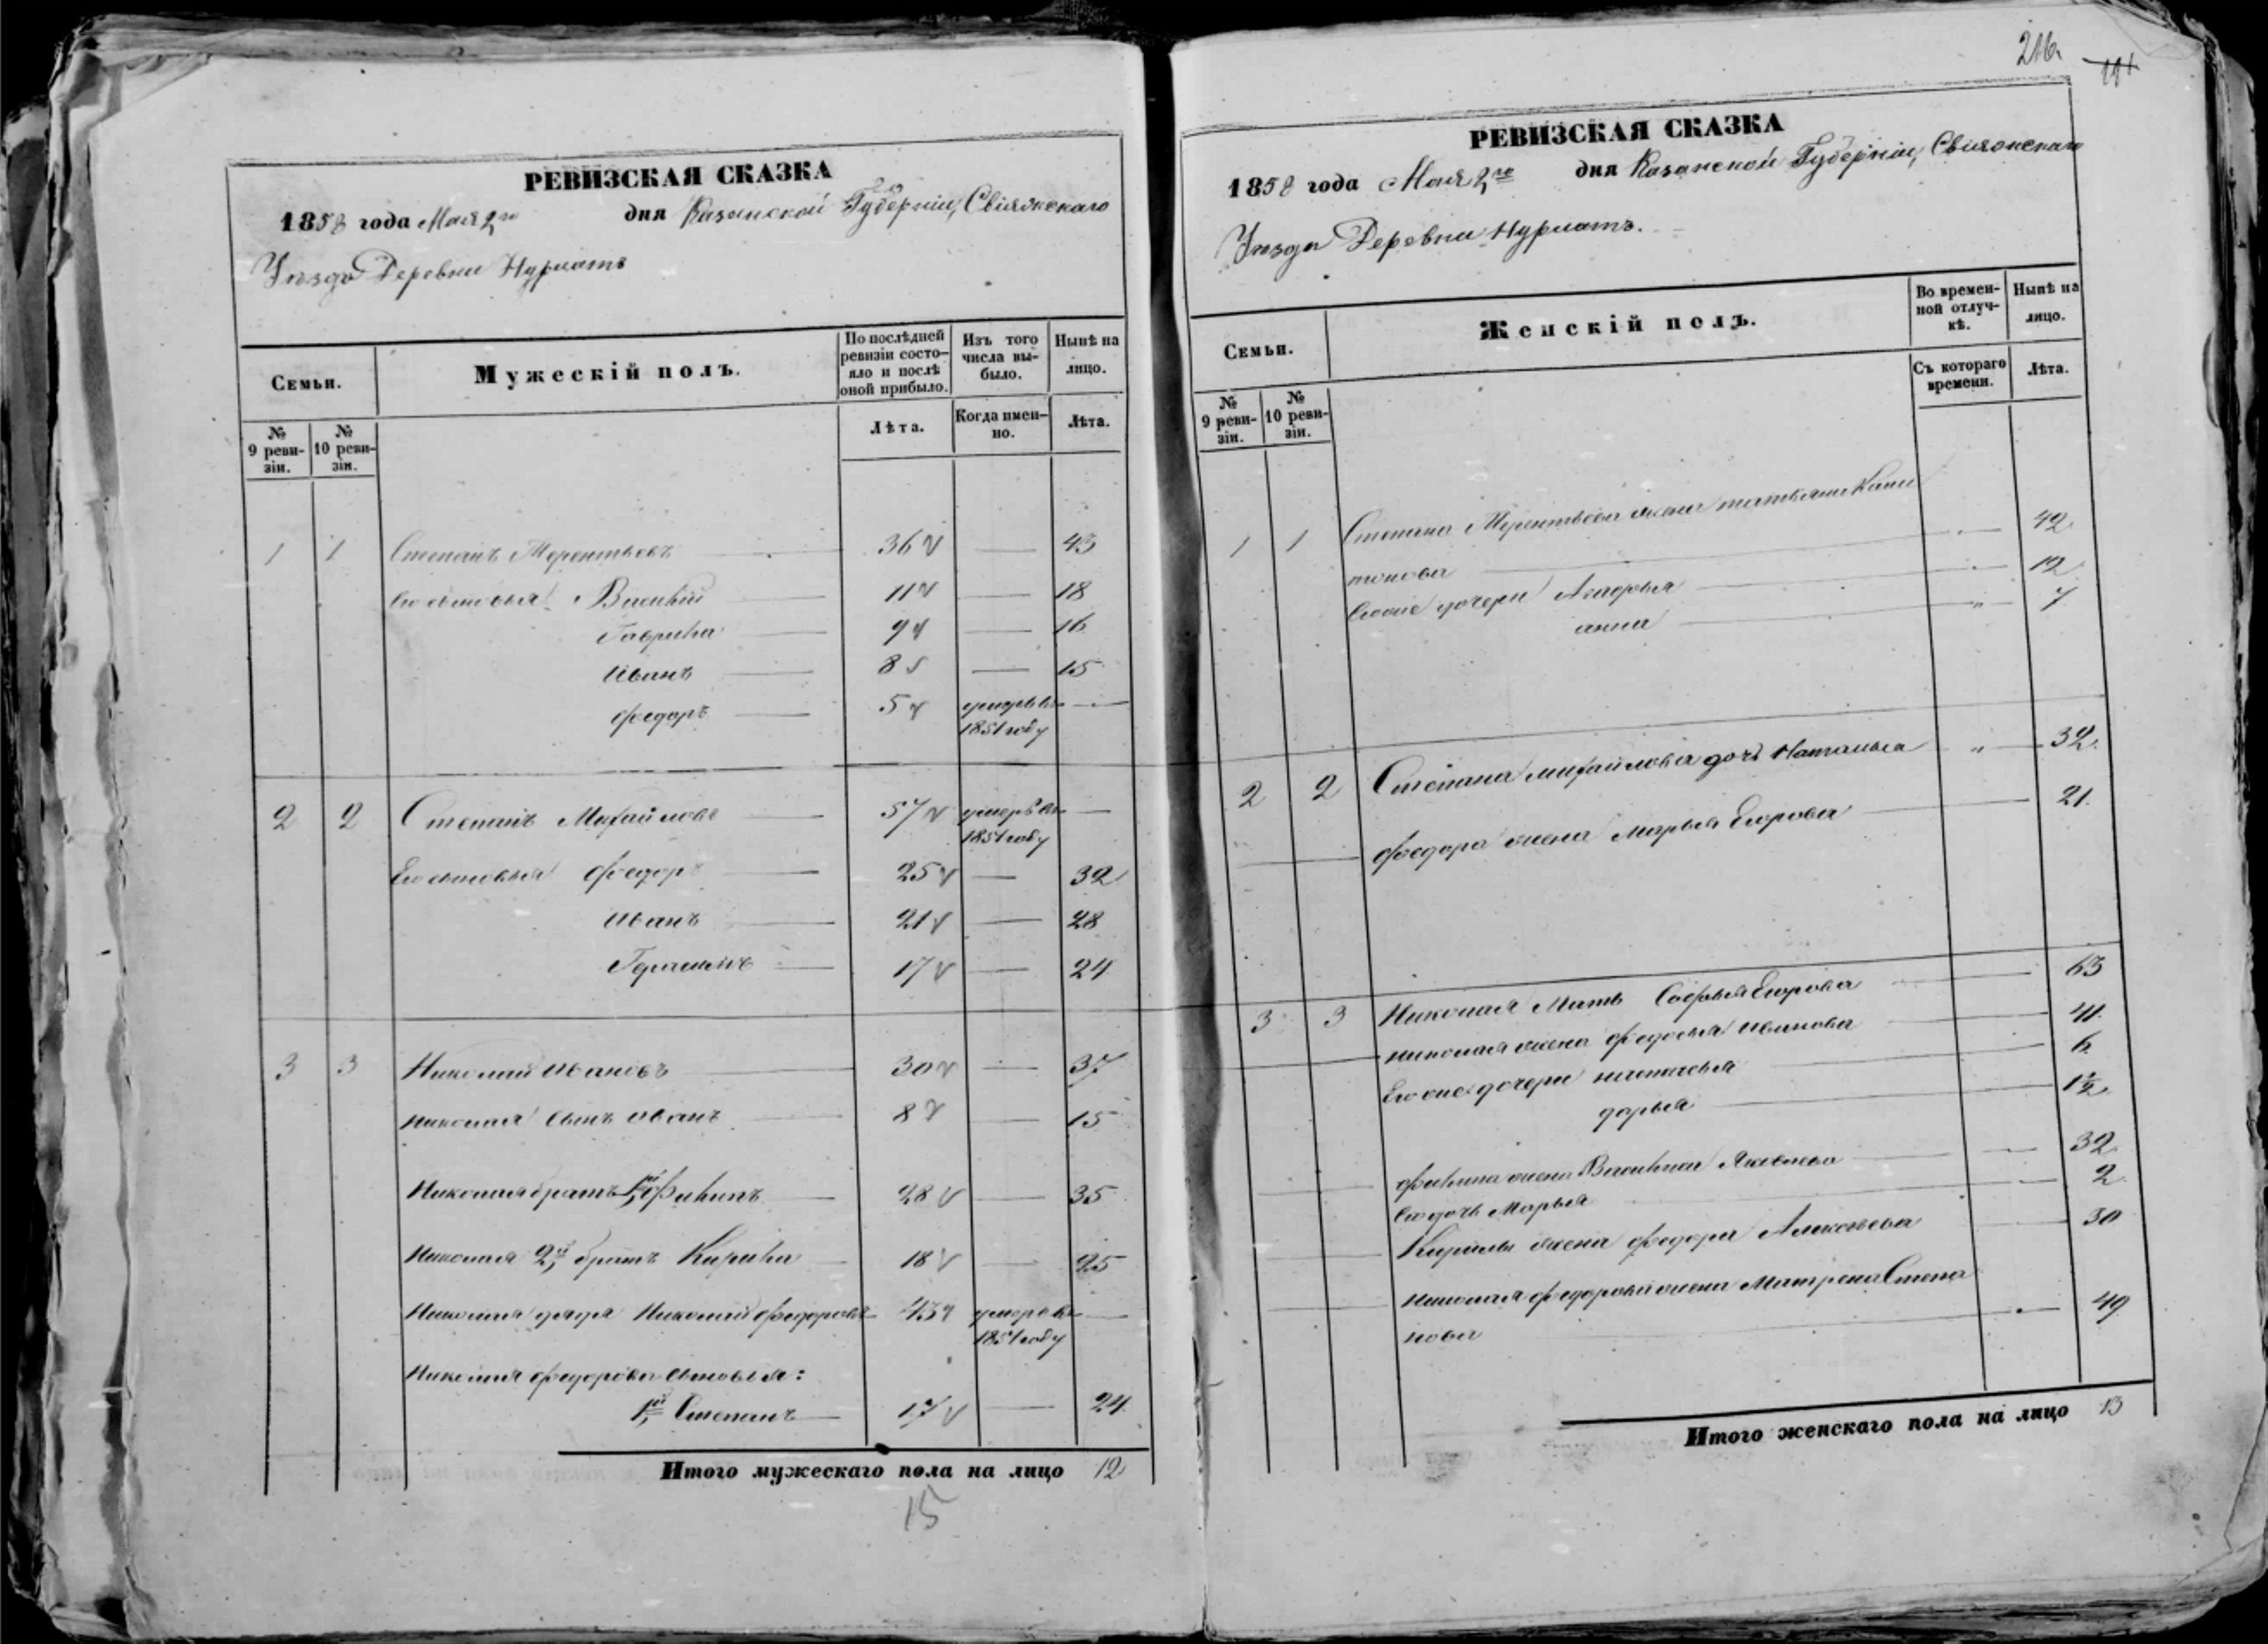 РЕВИЗСКАЯ СКАЗКА
1858 года Мая 2го дня Казанской Губерніи, Свіяжскаго
Уезда Деревни Нурматъ
Семьи.
Мужескій полъ.
По послѣдней ревизіи состояло и послѣ оной прибыло.
Изъ того числа выбыло.
Нынѣ на лицо.
№ 9 ревизіи.
№ 10 ревизіи.
Лѣта.
Когда именно.
Лѣта.
1 1 Степанъ Терентьевъ 36 — 43
Его сыновья Василій 11 — 18
Гаврила 9 — 16
Иванъ 8 — 15
Федоръ 5 умеръ въ 1851 году —
2 2 Степанъ Михайловъ 57 умеръ въ 1851 году —
Его сыновья Федоръ 25 — 32
Иванъ 21 — 28
Герасимъ 17 — 24
3 3 Николай Ивановъ 30 — 37
Николая сынъ Иванъ 8 — 15
Николая братъ 1й Филипъ 28 — 35
Николая 2й братъ Кирила 18 — 25
Николая дядя Николай Федоровъ 43 умеръ въ 1851 году —
Николая Федорова сыновья:
1й Степанъ 17 — 24
Итого мужескаго пола на лицо 12
15
216.
РЕВИЗСКАЯ СКАЗКА
1858 года Мая 2го дня Казанской Губерніи, Свіяжскаго
Уезда Деревни Нурматъ.
Семьи.
Женскій полъ.
Во временной отлучкѣ.
Нынѣ на лицо.
№ 9 ревизіи.
№ 10 ревизіи.
Съ котораго времени.
Лѣта.
1 1 Степана Терентьева жена Татьяна Капи
тонова 42
дочери 12
анна " 7
2 2 Степана Михайлова дочь Наталья " 32.
Федора жена Марья Егорова 21.
3 3 Николая Мать Софья Егорова 63
Николая жена Федосья Иванова 41.
Его дочери Наталья 6
дарья 1½
Филипа жена Василиса Яковлева 32
Его дочь Марья 2
Кирилы жена Федора Алексеева 30
Николая Федорова жена Матрена Степа
нова 49
Итого женскаго пола на лицо 13